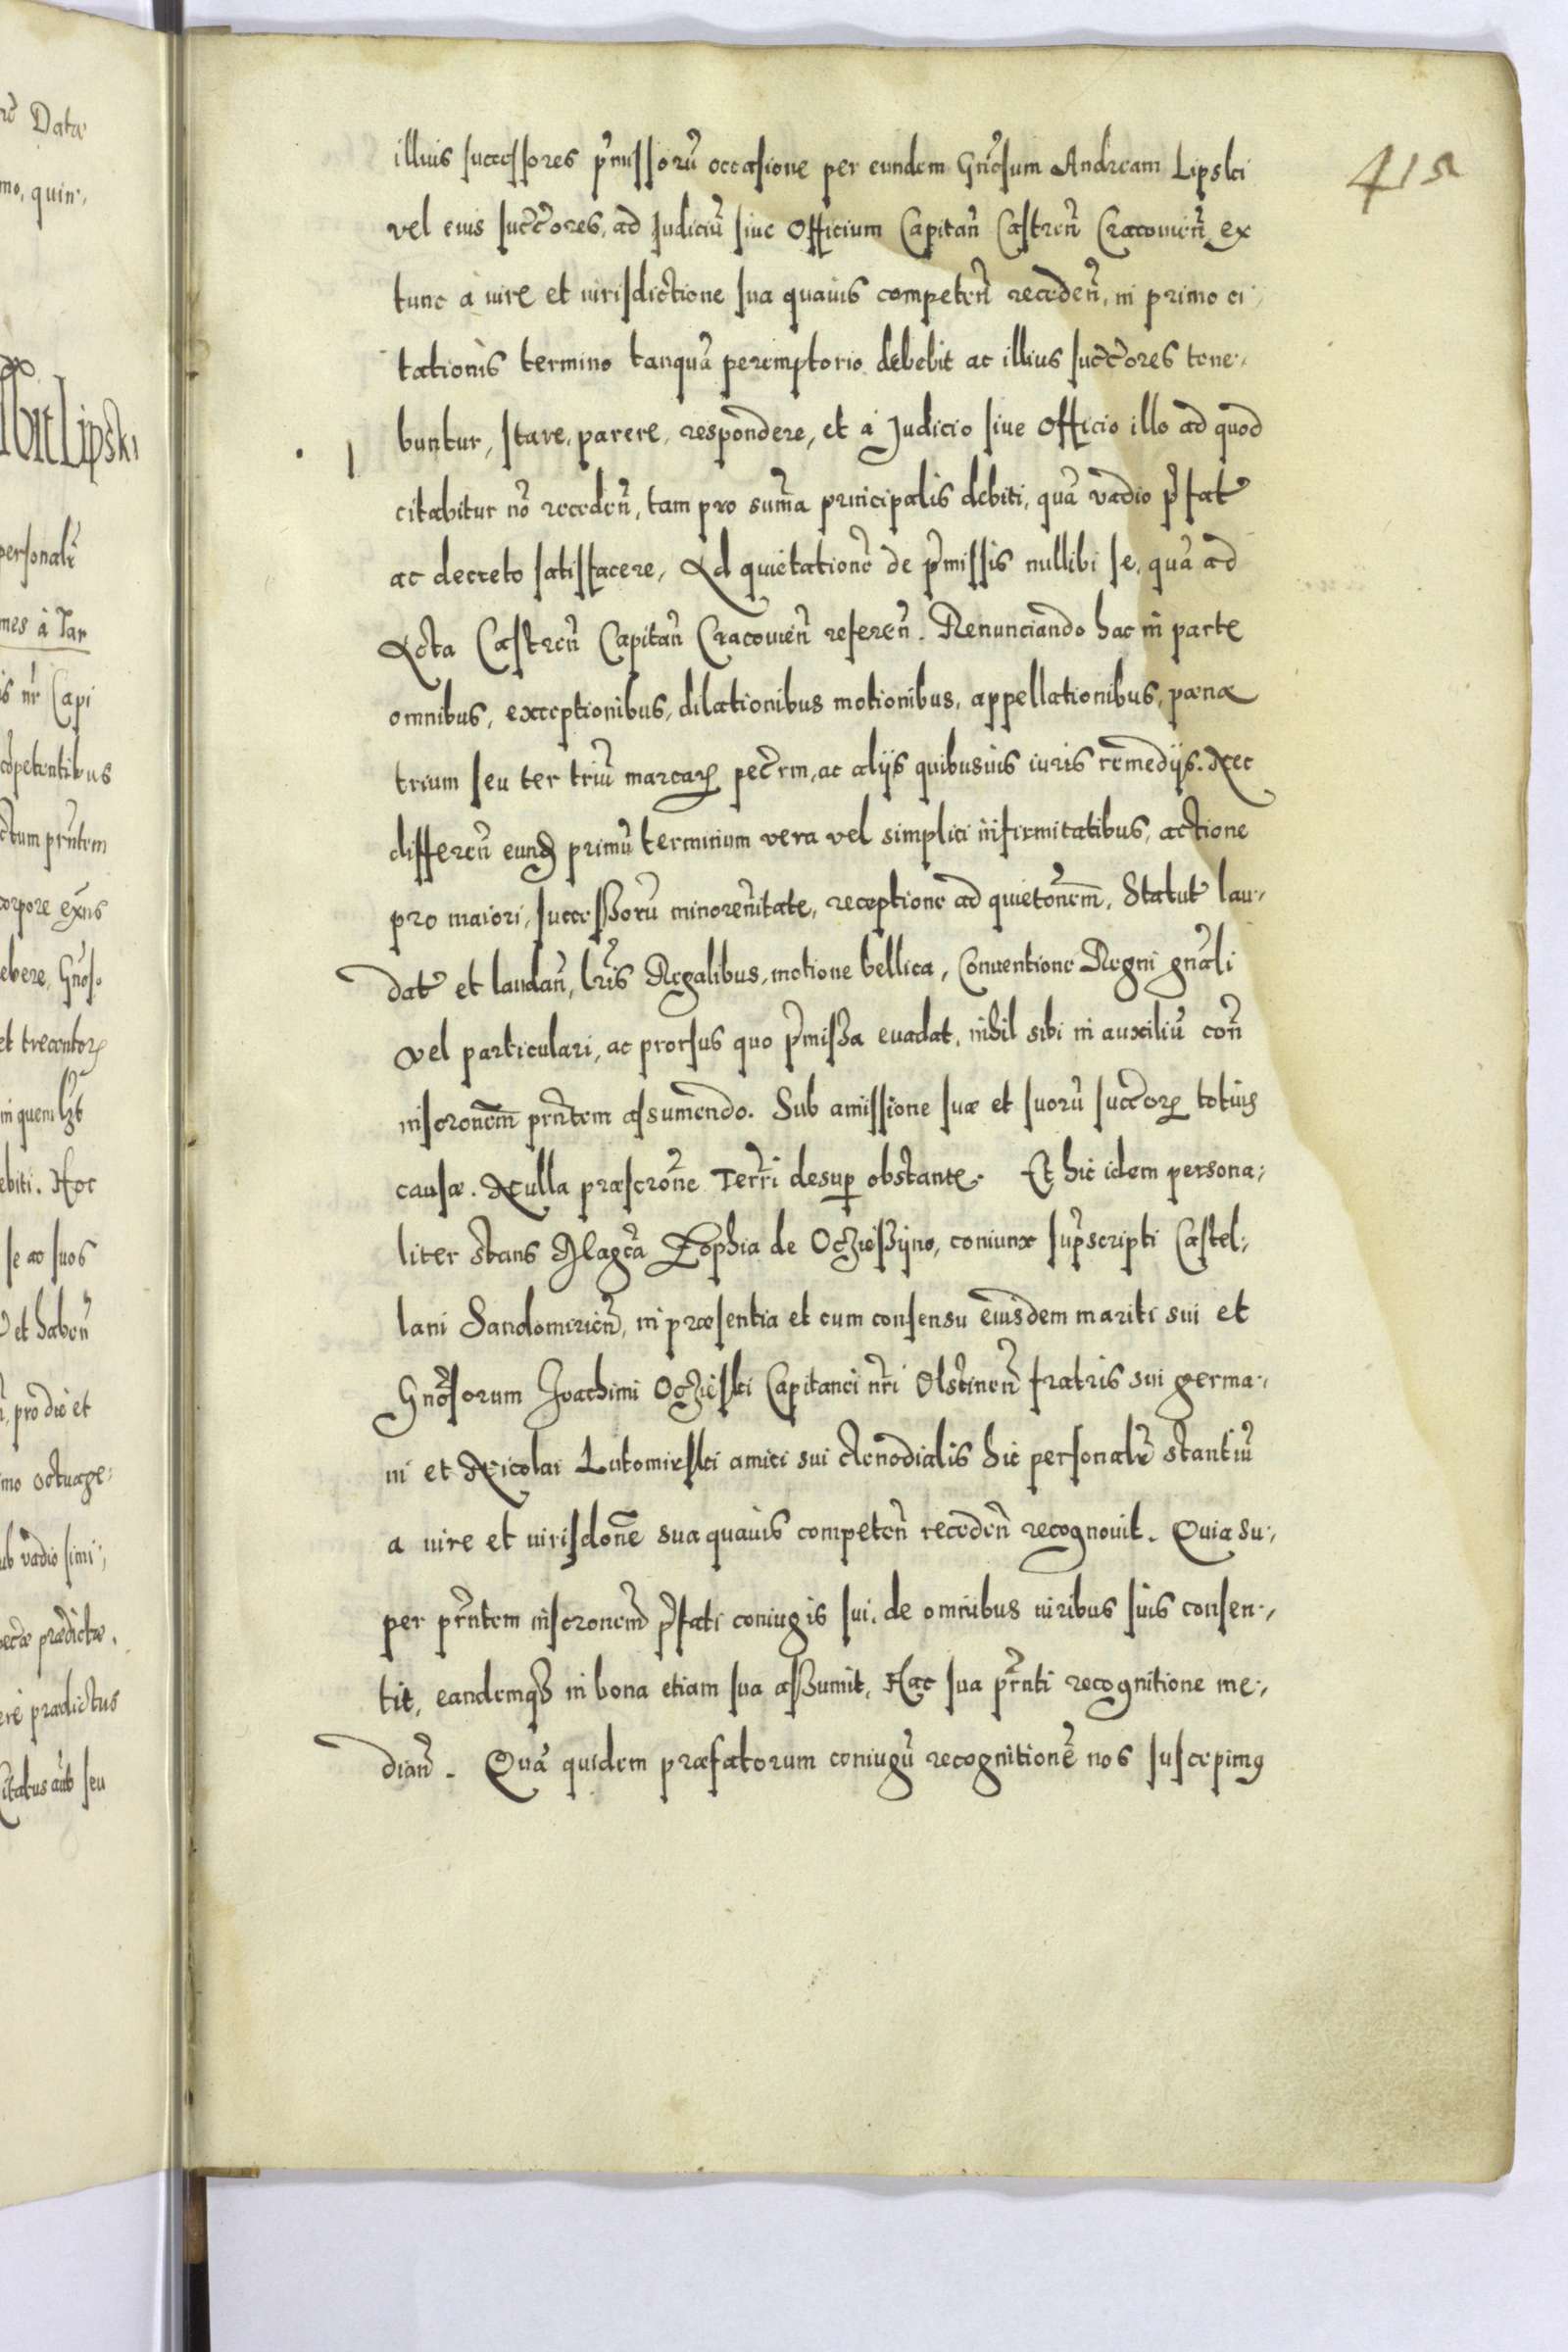 415
illius successores p̃missorũ occasione per eundem Gñosum Andream Lipski
vel eius succ̃ores, ad Judiciũ siue Officium Capitañ Castreñ Cracouieñ, ex
tunc à iure et iurisdictione sua quauis competeñ recedeñ, in primo ci-
tationis termino tanquã peremptorio debebit ac illius succ̃ores tene-
buntur, stare, parere, respondere, et à Judicio siue Officio illo ad quod
citabitur nõ recedeñ, tam pro summa principalis debiti, quã vadio p̃fat̃
ac decreto satisfacere, Ad quietationẽ de p̃missis nullibi se, quã ad
Acta Castreñ Capitañ Cracouieñ refereñ. Renunciando hac in parte
omnibus, exceptionibus, dilationibus motionibus, appellationibus, pœnæ
trium seu ter triũ marcarꝝ pec̃rm, ac alijs quibusuis iuris remedijs. Nec
differeñ eund̃ primũ terminum vera vel simplici infirmitatibus, actione
pro maiori, successorũ minorenñitate, receptione ad quietõnem, Statut̃ lau-
dat̃ et laudañ, lr̃is Regalibus, motione bellica, Conuentione Regni gñali
vel particulari, ac prorsus quo p̃missa euadat, nihil sibi in auxiliũ coñ
inscronẽm prñtem assumendo. Sub amissione suæ et suorũ succ̃orꝝ totius
causæ. Nulla præscrõne Terr̃i desuꝑ obstante. Et hic idem persona-
liter stans Magcã Zophia de Ocziessijno, coniunx sup̃scripti Castel-
lani Sandomirieñ, in præsentia et cum consensu eiusdem mariti sui et
Gñosorum Joachimi Oczieski Capitanei nr̃i Olstineñ fratris sui germa-
ni et Nicolai Lutomirski amici sui Acnodialis hic personalr̃ stantiũ
a iure et iurisdone sua quauis competeñ recedeñ recognouit. Quia su-
per prñtem inscronem p̃fati coniugis sui, de omnibus iuribus suis consen-
tit, eandemqꝫ in bona etiam sua assumit, Hac sua prñti recognitione me-
diañ. Quã quidem præfatorum coniugũ recognitionẽ nos suscepimꝯ